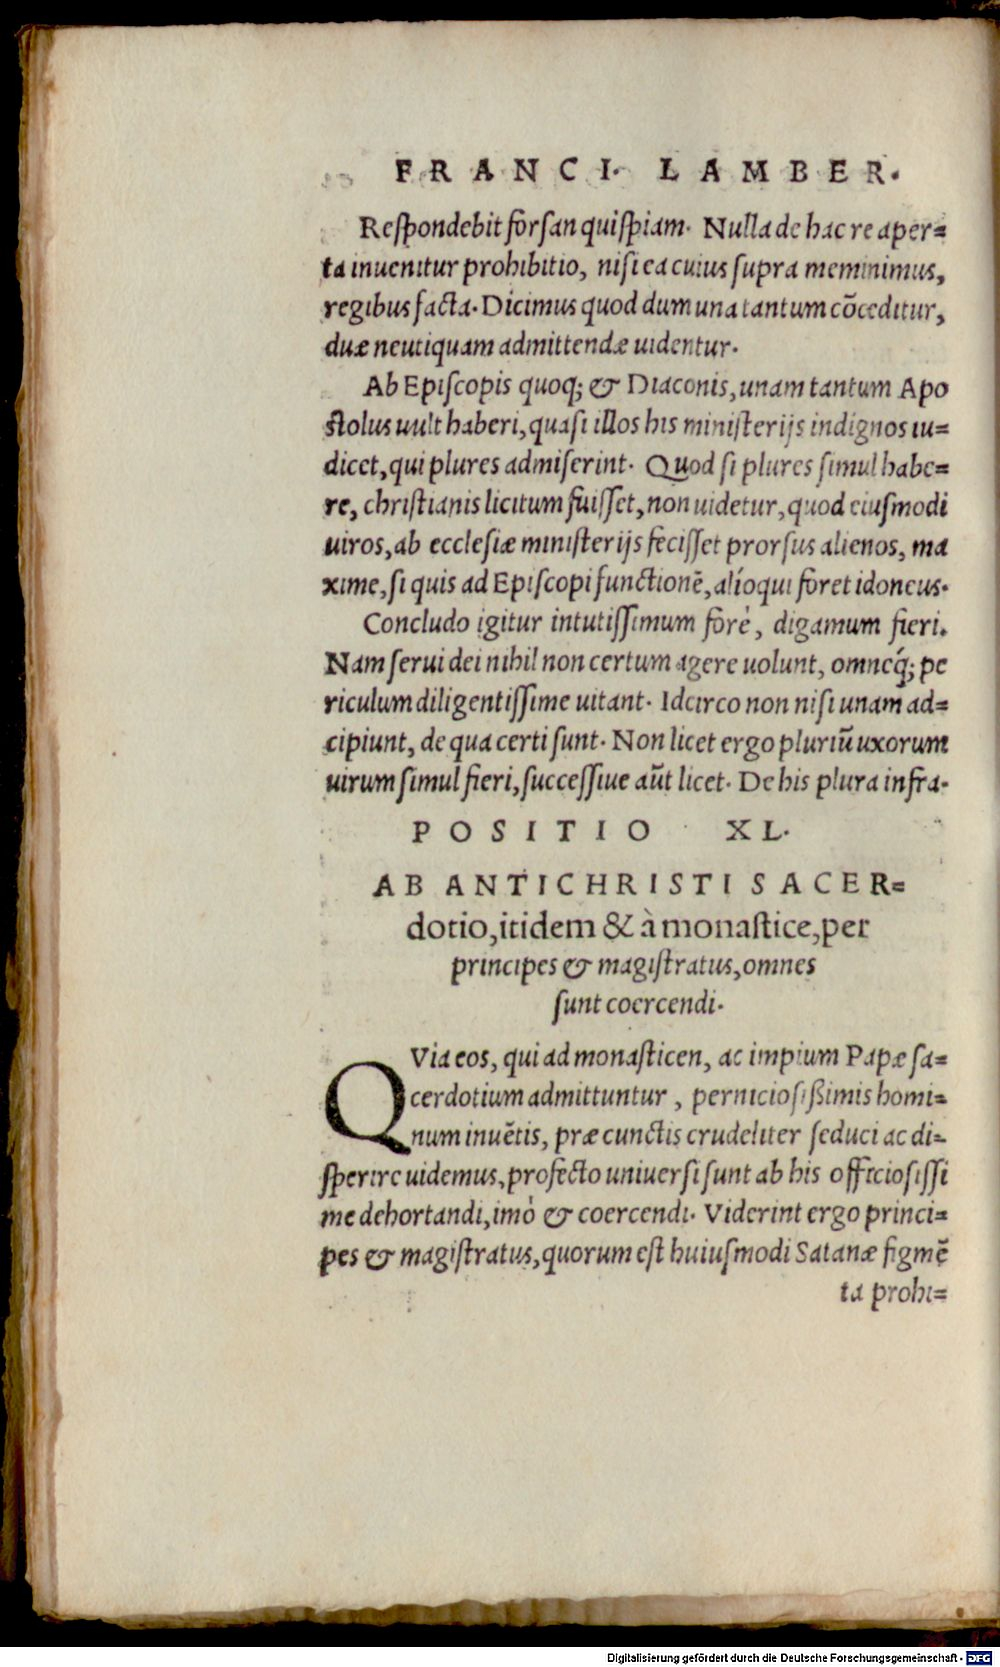 FRANCI. LAMBER.
Respondebit forsan quispiam. Nulla de hac re aper=
ta inuenitur prohibitio, nisi ea cuius supra meminimus,
regibus facta. Dicimus quod dum una tantum cōceditur,
duæ neutiquam admittendæ uidentur.
Ab Episcopis quoq; & Diaconis, unam tantum Apo
stolus uult haberi, quasi illos his ministerijs indignos iu=
dicet, qui plures admiserint. Quod si plures simul habe=
re, christianis licitum fuisset, non uidetur, quod eiusmodi
uiros, ab ecclesiæ ministerijs fecisset prorsus alienos, ma
xime, si quis ad Episcopi functionē, alioqui foret idoneus.
Concludo igitur intutissimum forè, digamum fieri.
Nam serui dei nihil non certum agere uolunt, omneq́; pe
riculum diligentissime uitant. Idcirco non nisi unam ad=
cipiunt, de qua certi sunt. Non licet ergo pluriū uxorum
uirum simul fieri, successiue aūt licet. De his plura infra.
POSITIO XL.
AB ANTICHRISTI SACER=
dotio, itidem & à monastice, per
principes & magistratus, omnes
sunt coercendi.
QVia eos, qui ad monasticen, ac impium Papæ sa=
cerdotium admittuntur, perniciosißimis homi=
num inuētis, præ cunctis crudeliter seduci ac di=
sperire uidemus, profecto uniuersi sunt ab his officiosissi
me dehortandi, imò & coercendi. Viderint ergo princi=
pes & magistratus, quorum est huiusmodi Satanæ figmē
ta prohi=
Digitalisierung gefördert durch die Deutsche Forschungsgemeinschaft - DFG